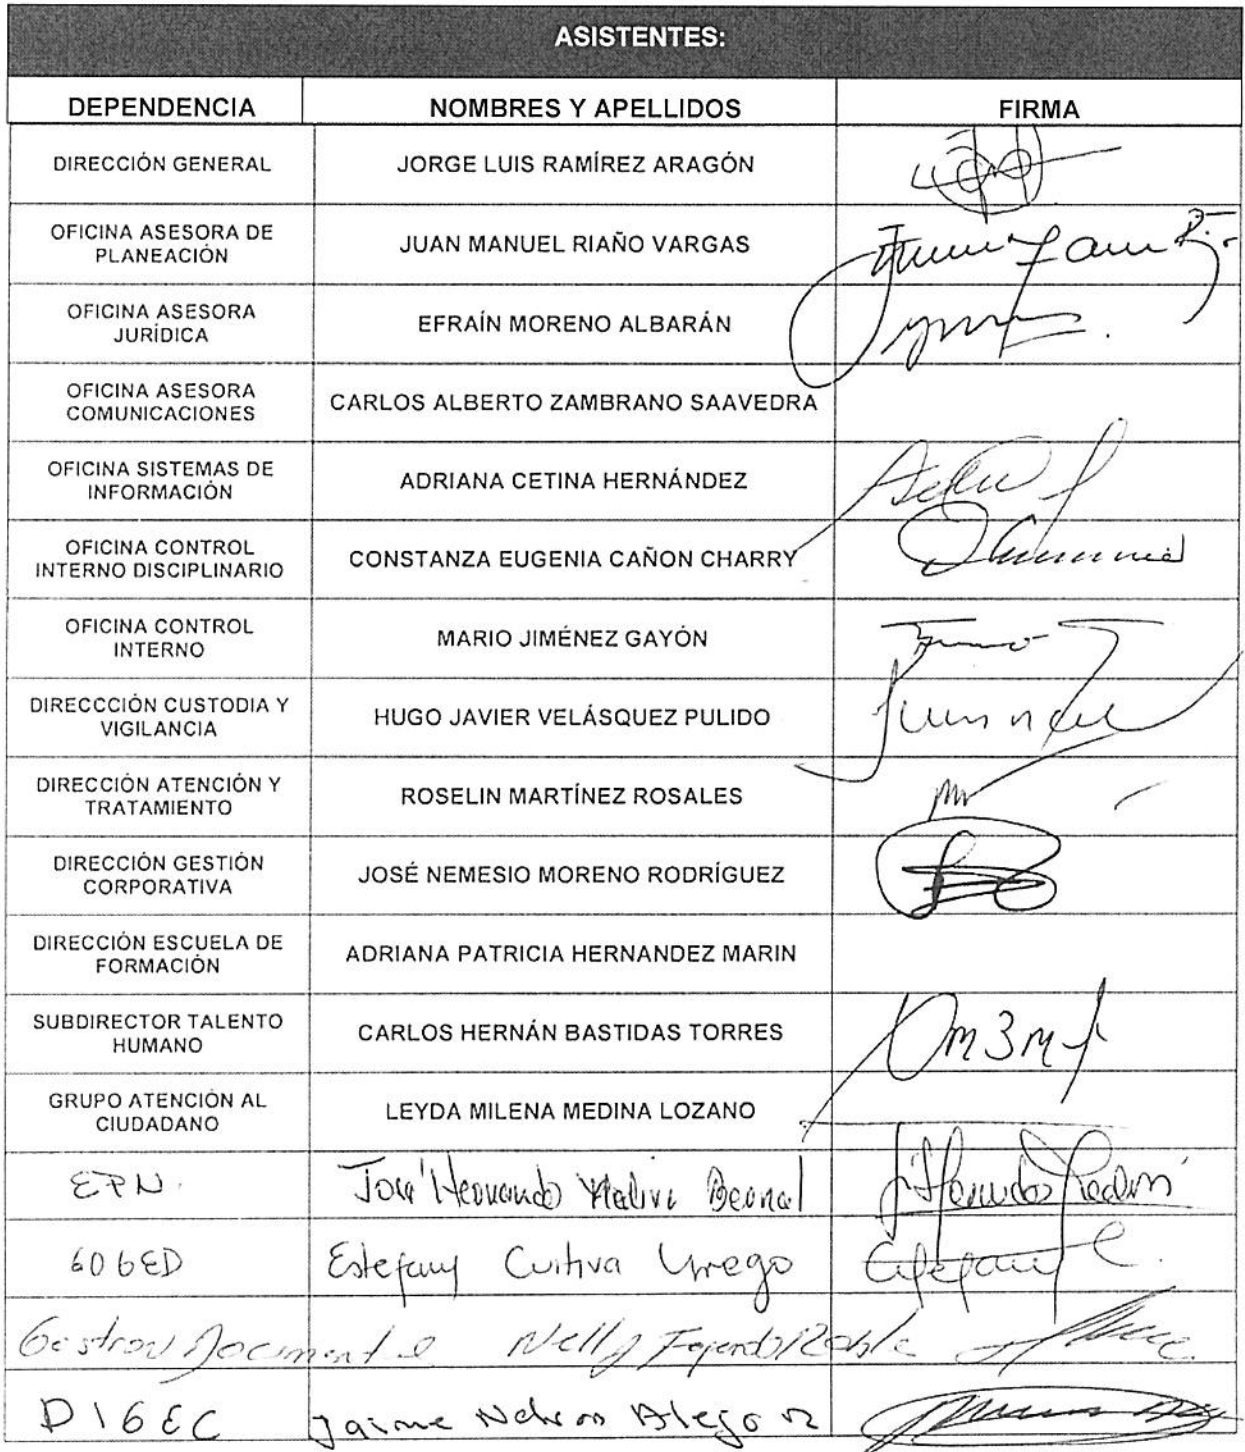 ASISTENTES:
DEPENDENCIA NOMBRES Y APELLIDOS FIRMA
DIRECCIÓN GENERAL JORGE LUIS RAMÍREZ ARAGÓN
OFICINA ASESORA DE
PLANEACIÓN JUAN MANUEL RIAÑO VARGAS
OFICINA ASESORA
JURÍDICA EFRAÍN MORENO ALBARÁN
OFICINA ASESORA
COMUNICACIONES CARLOS ALBERTO ZAMBRANO SAAVEDRA
OFICINA SISTEMAS DE
INFORMACIÓN ADRIANA CETINA HERNÁNDEZ
OFICINA CONTROL
INTERNO DISCIPLINARIO CONSTANZA EUGENIA CAÑON CHARRY
OFICINA CONTROL
INTERNO MARIO JIMÉNEZ GAYÓN
DIRECCCIÓN CUSTODIA Y
VIGILANCIA HUGO JAVIER VELÁSQUEZ PULIDO
DIRECCIÓN ATENCIÓN Y
TRATAMIENTO ROSELIN MARTÍNEZ ROSALES
DIRECCIÓN GESTIÓN
CORPORATIVA JOSÉ NEMESIO MORENO RODRÍGUEZ
DIRECCIÓN ESCUELA DE
FORMACIÓN ADRIANA PATRICIA HERNANDEZ MARIN
SUBDIRECTOR TALENTO
HUMANO CARLOS HERNÁN BASTIDAS TORRES
GRUPO ATENCIÓN AL
CIUDADANO LEYDA MILENA MEDINA LOZANO
EPN. José Hernando Bernal
Estefany Cuitiva Urego Estefany C.
Nelly
Jaime Nelson